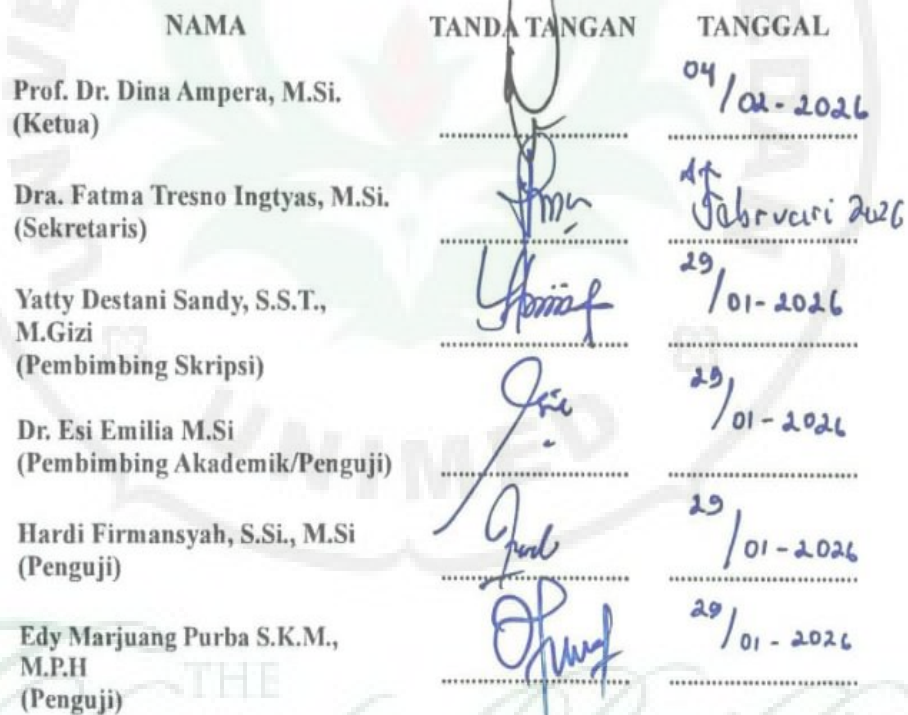 NAMA TANDA TANGAN TANGGAL
Prof. Dr. Dina Ampera, M.Si.
(Ketua)
04/02-2026
Dra. Fatma Tresno Ingtyas, M.Si.
(Sekretaris)
Februari 2026
Yatty Destani Sandy, S.S.T.,
M.Gizi
(Pembimbing Skripsi)
29/01-2026
Dr. Esi Emilia M.Si
(Pembimbing Akademik/Penguji)
29/01-2026
Hardi Firmansyah, S.Si., M.Si
(Penguji)
29/01-2026
Edy Marjuang Purba S.K.M.,
M.P.H
(Penguji)
29/01-2026
UNIMED
THE